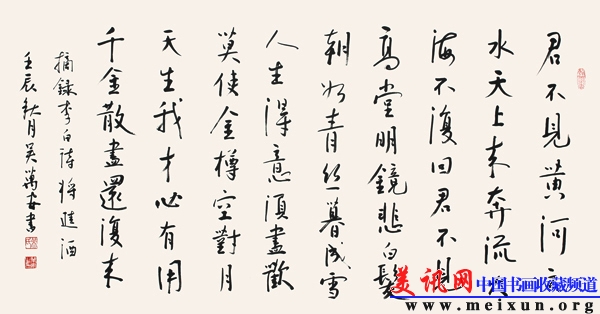 君不見黃河之
水天上来奔流到
海不復回君不見
高堂明鏡悲白髮
朝如青丝暮成雪
人生得意須盡歡
莫使金樽空對月
天生我才必有用
千金散盡還復来
摘錄李白詩將進酒
壬辰秋月吴萬書
美讯网
中国书画收藏频道
www.meixun.org